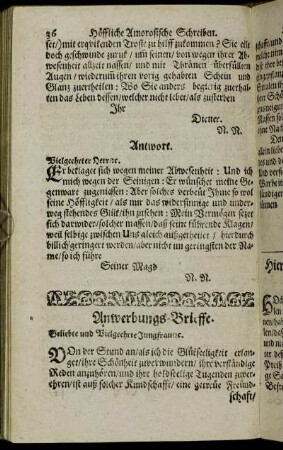 36 Höffliche Amorosische Schreiben.
ser/) mit erqvikenden Trost zu hilff zukommen? Sie eile
doch geschwinde zurük / üm seinen / von wegen ihrer Ab-
wesenheit allzeit nassen / und mit Thränen überfülleten
Augen / wiederüm ihren vorig gehabten Schein und
Glantz zuertheilen: Wo Sie anders begierig zuerhal-
ten das Leben dessen / welcher nicht leber / als zusterben
Ihr
Diener.
N. N.
Antwort.
Vielgeehrter Herr ꝛc.
ER beklaget sich wegen meiner Abwesenheit: Und ich
mich wegen der Seinigen: Er wünschet meine Ge-
genwart zugeniessen: Aber solches verbeut Ihme so wol
seine Höffligkeit / als mir das widersinnige und under-
weg stehendes Glük / ihn zusehen: Mein Vermögen setzet
sich darwider / solcher massen / daß seine führende Klagen /
weil selbige zwischen Uns gleich außgetheilet / hierdurch
billich geringer werden / aber nicht im geringsten der Na-
me / so ich führe
Seiner Magd
N. N.
Anwerbungs-Brieffe.
Geliebte und Vielgeehrte Jungfrau ꝛc.
VOn der Stund an / als ich die Glükseeligkeit erlan-
get / ihre Schönheit zuverwundern / ihre verständige
Reden anzuhören / und ihre holdseelige Tugenden zuver-
ehren / ist auß solcher Kundschafft / eine getreue Freünd-
schaft /
Hier